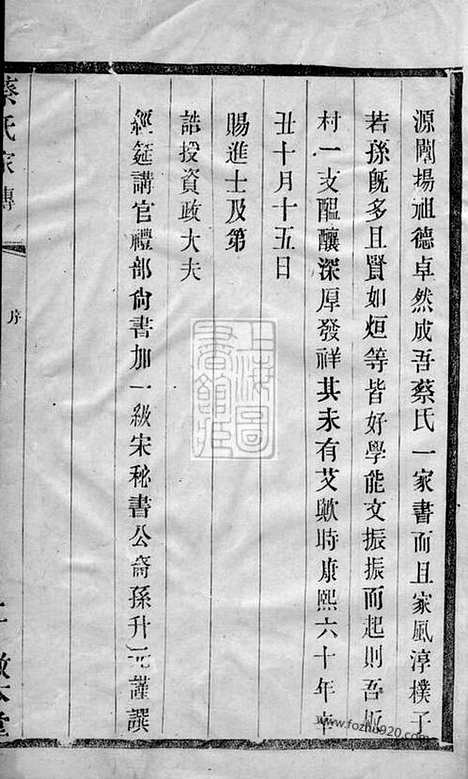 源闡揚祖德卓然成吾蔡氏一家書而且家風淳樸子
若孫旣多且賢如烜等皆好學能文振振而起則吾
村一支醞釀深厚發祥其未有艾歟時康熙六十年辛
丑十月十五日
賜進士及第
誥授資政大夫
經筵講官禮部尙書加一級宋秘書公裔孫升元謹譔
蔡氏家傳
序
敬本堂
上海圖書館藏
www.fozhu920.com